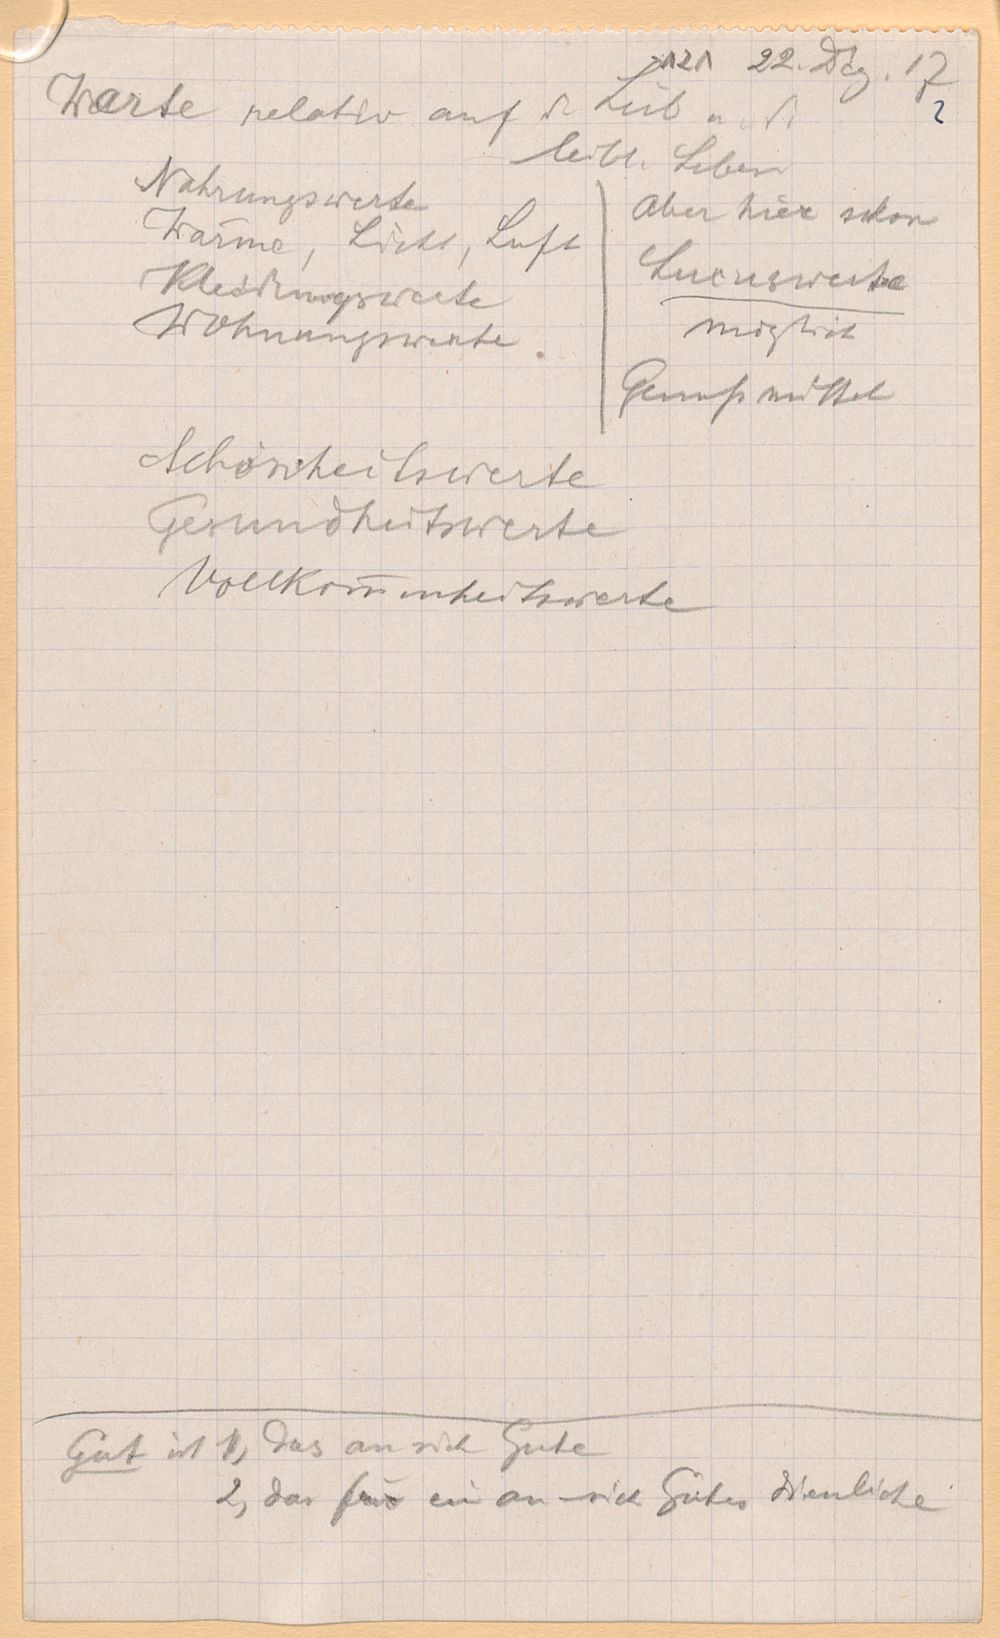 121 22. Dez. 17
2
Werte relativ auf d Leib u. d
leibl. Leben
Nahrungswerte
Wärme, Licht, Luft
Kleidungswerte
Wohnungswerte.
Aber hier schon
Luxuswerte
möglich
Genußmittel
Schönheitswerte
Gesundheitswerte
Vollkom̅enheitswerte
Gut ist 1, das an sich Gute
2, das für ein an sich Gutes dienliche